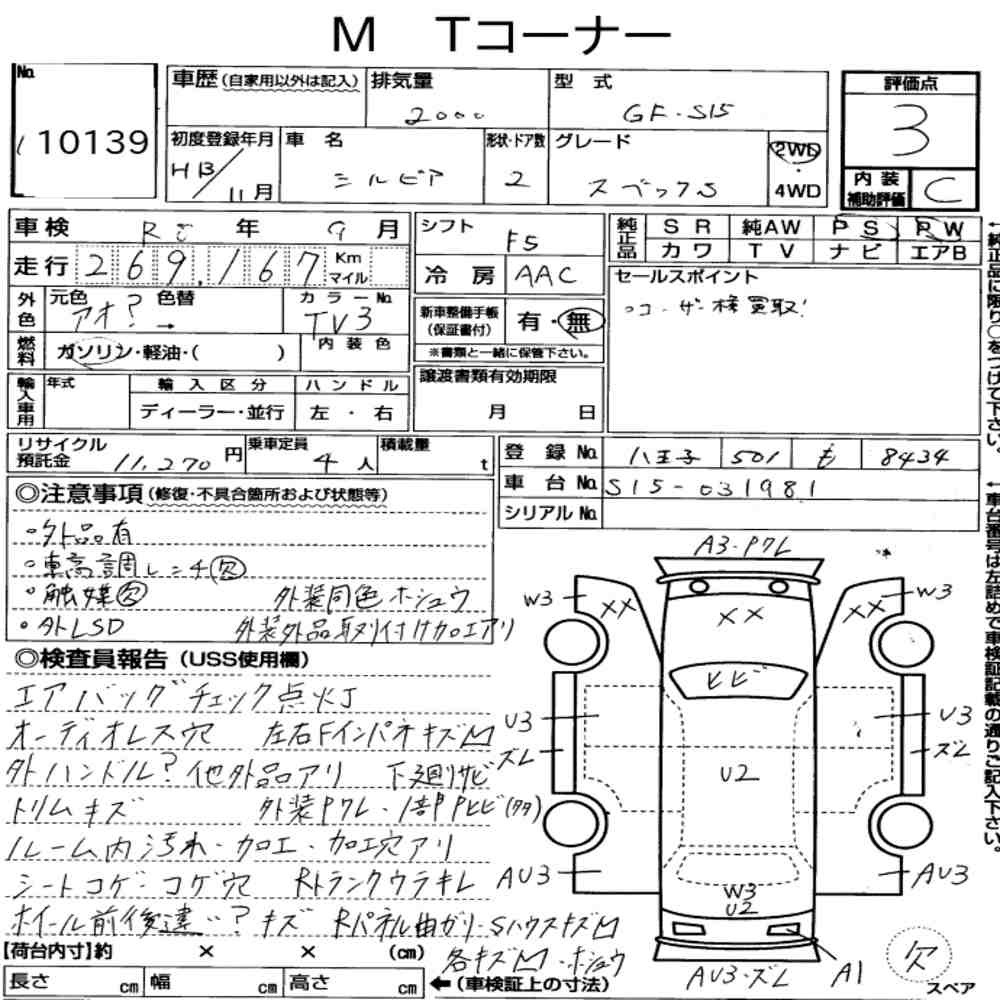 M Tコーナー
No.
10139
車歴(自家用以外は記入)
排気量
2000
型式
GF-S15
評価点
3
初度登録年月
H13/11月
車名
シルビア
形状・ドア数
2
グレード
スペックS
2WD
・
4WD
内装補助評価
C
車検
年 9月
走行
269,167
Km
マイル
シフト
F5
冷房
AAC
純正品
SR 純AW PS PW
カワ TV ナビ エアB
←純正品に限り○をつけて下さい。
外色
元色 アオ? 色替 →
カラーNo.
TV3
新車整備手帳(保証書付)
有・無
※書類と一緒に保管下さい。
セールスポイント
・ユーザー様買取!
燃料
ガソリン・軽油・( )
内装色
輸入車用
年式
輸入区分
ディーラー・並行
ハンドル
左・右
譲渡書類有効期限
月 日
リサイクル預託金
11,270円
乗車定員
4人
積載量
t
登録No.
八王子 501 も 8434
車台No.
S15-031981
シリアルNo.
←車台番号は左詰めで車検証記載の通りご記入下さい。
◎注意事項(修復・不具合箇所および状態等)
・外品有
・車高調レンチ欠
・触媒欠 外装同色ホシュウ
・外LSD 外装外品取り付け加工アリ
◎検査員報告(USS使用欄)
エアバッグチェック点灯
オーディオレス穴 左右FインパネキズM
外ハンドル? 他外品アリ 下廻サビ
トリムキズ 外装P7レ・1部PヒビP(タタ)
ルーム内汚れ・加工・加工穴アリ
シートコゲ・コゲ穴 Rトランクウラキレ
ホイール前後違い? キズ Rパネル曲ガリ・SハウスキズM
各キズM・ホシュウ
A3・P7レ
W3
XX
XX
XX
W3
ヒビ
U3
ズレ
U2
U3
ズレ
AU3
W3
U2
AU3
AU3・ズレ
A1
欠
スペア
【荷台内寸】約 × × (cm)
長さ cm 幅 cm 高さ cm
←(車検証上の寸法)